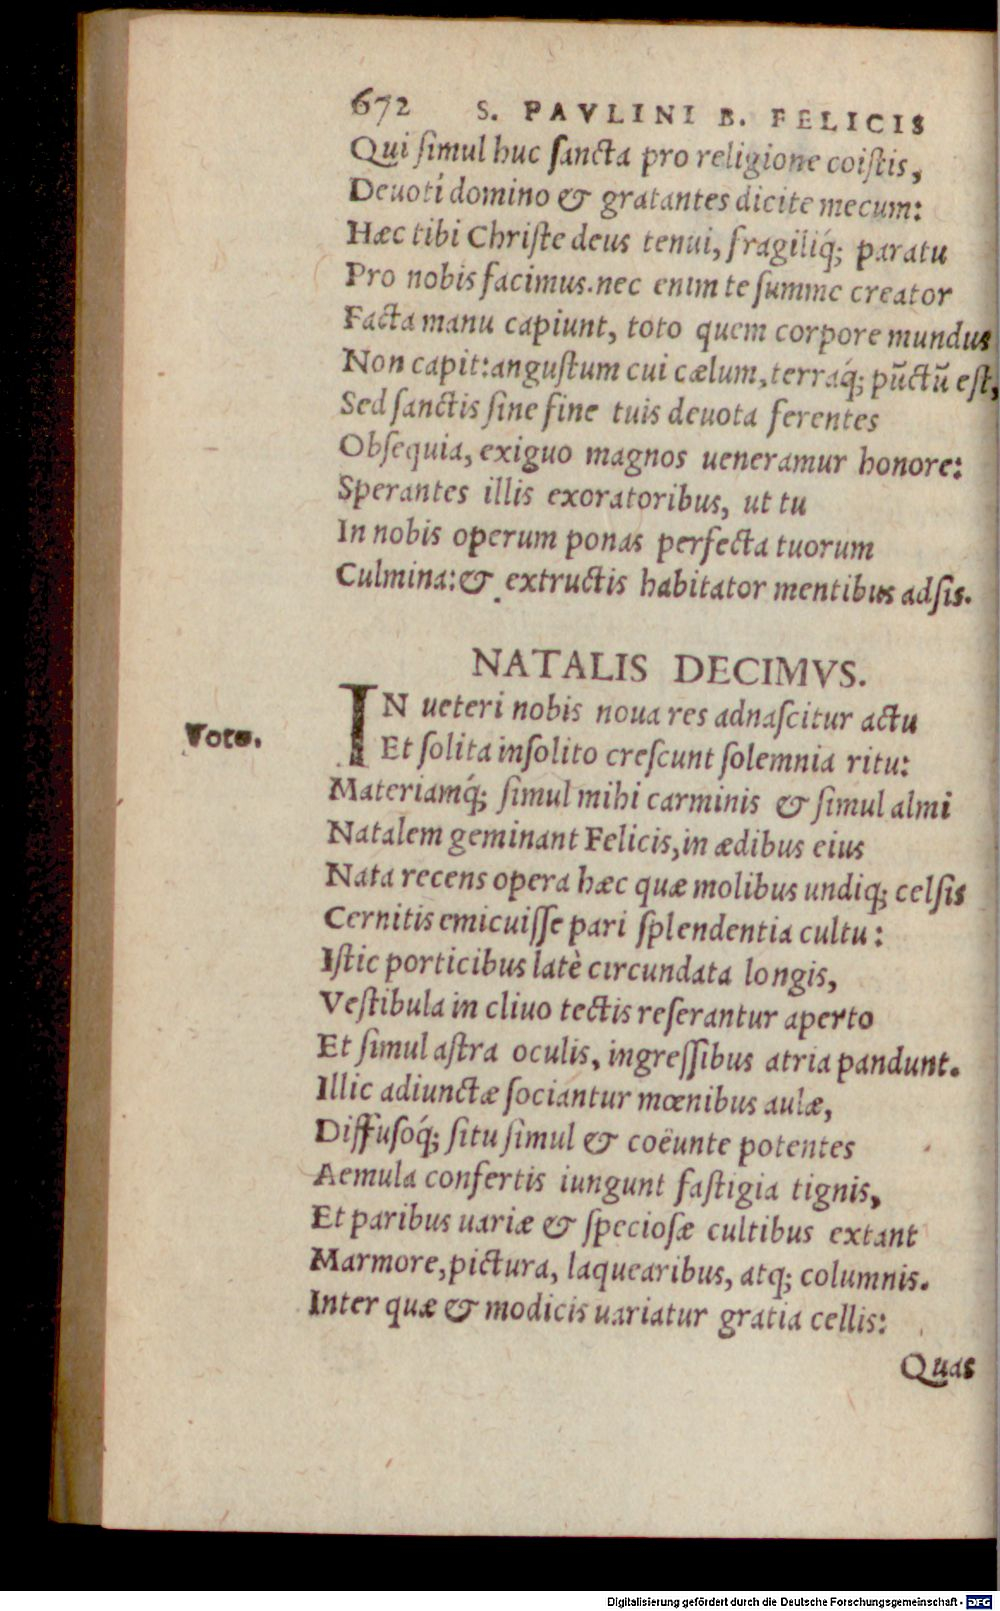 672 S. PAVLINI B. FELICIS
Qui ſimul huc ſancta pro religione coiſtis,
Deuoti domino & gratantes dicite mecum:
Hæc tibi Chriſte deus tenui, fragiliq́; paratu
Pro nobis facimus. nec enim te ſumme creator
Facta manu capiunt, toto quem corpore mundus
Non capit: anguſtum cui cælum, terraq́; pūctū eſt,
Sed ſanctis ſine fine tuis deuota ferentes
Obſequia, exiguo magnos ueneramur honore:
Sperantes illis exoratoribus, ut tu
In nobis operum ponas perfecta tuorum
Culmina: & extructis habitator mentibus adſis.
NATALIS DECIMVS.
Voto.
IN ueteri nobis noua res adnaſcitur actu
Et ſolita inſolito creſcunt ſolemnia ritu:
Materiamq́; ſimul mihi carminis & ſimul almi
Natalem geminant Felicis, in ædibus eius
Nata recens opera hæc quæ molibus undiq; celſis
Cernitis emicuiſſe pari ſplendentia cultu:
Iſtic porticibus latè circundata longis,
Veſtibula in cliuo tectis reſerantur aperto
Et ſimul aſtra oculis, ingreſſibus atria pandunt.
Illic adiunctæ ſociantur mœnibus aulæ,
Diffuſoq́; ſitu ſimul & coëunte potentes
Aemula confertis iungunt faſtigia tignis,
Et paribus uariæ & ſpecioſæ cultibus extant
Marmore, pictura, laquearibus, atq; columnis.
Inter quæ & modicis uariatur gratia cellis:
Quas
Digitalisierung gefördert durch die Deutsche Forschungsgemeinschaft - DFG